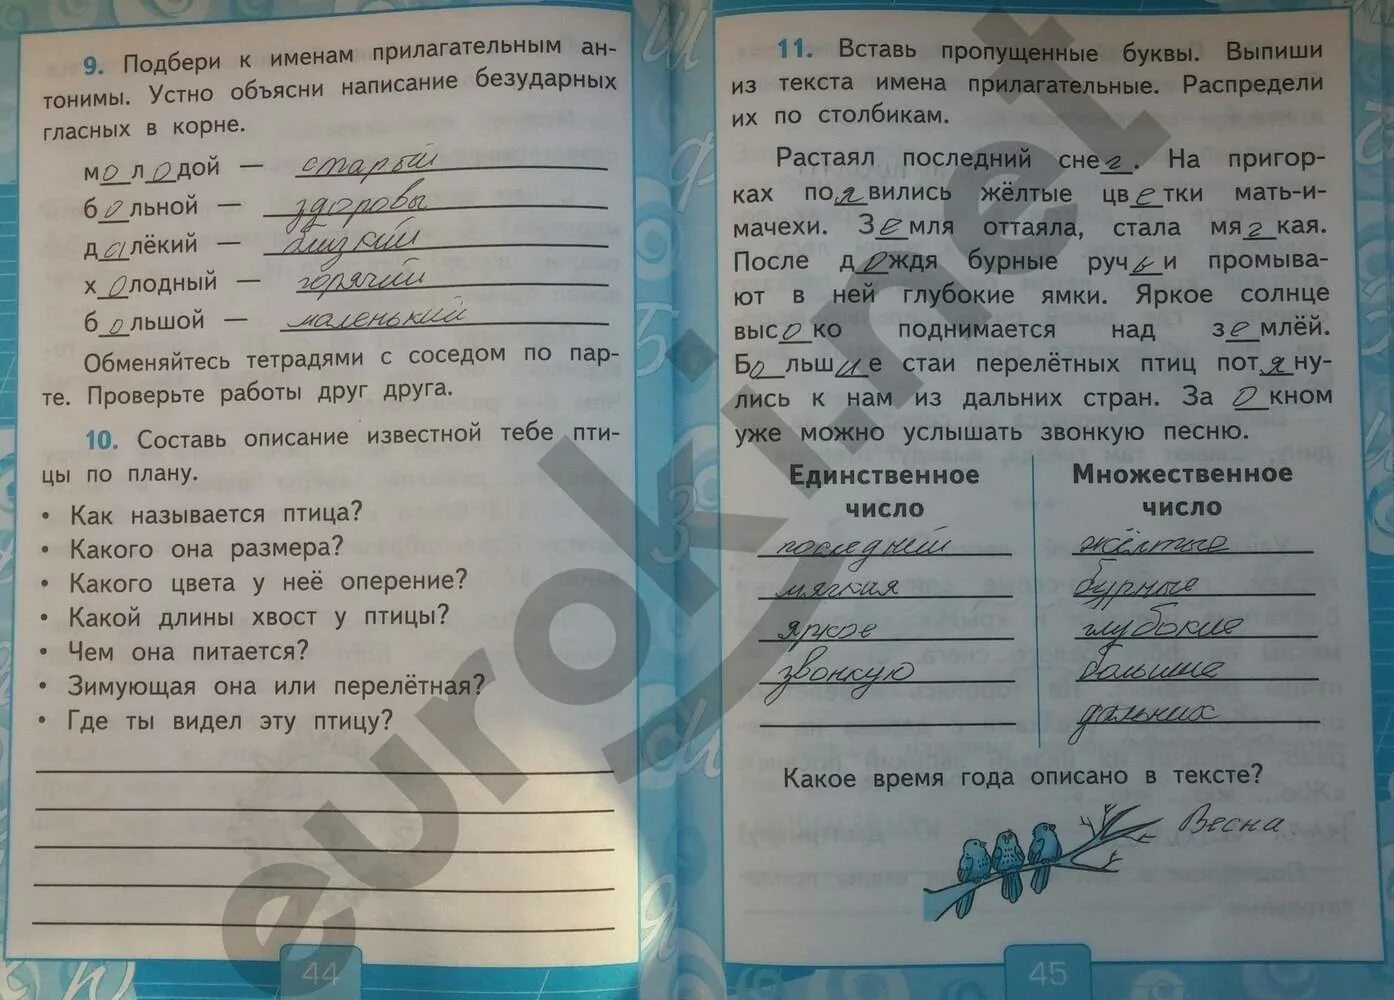 9. Подбери к именам прилагательным ан-
тонимы. Устно объясни написание безударных
гласных в корне.
молодой — старый
больной — здоровы
далёкий — близкий
холодный — горячий
большой — маленький
Обменяйтесь тетрадями с соседом по пар-
те. Проверьте работы друг друга.
10. Составь описание известной тебе пти-
цы по плану.
• Как называется птица?
• Какого она размера?
• Какого цвета у неё оперение?
• Какой длины хвост у птицы?
• Чем она питается?
• Зимующая она или перелётная?
• Где ты видел эту птицу?
44
11. Вставь пропущенные буквы. Выпиши
из текста имена прилагательные. Распредели
их по столбикам.
Растаял последний снег. На пригор-
ках появились жёлтые цветки мать-и-
мачехи. Земля оттаяла, стала мягкая.
После дождя бурные ручьи промыва-
ют в ней глубокие ямки. Яркое солнце
высоко поднимается над землёй.
Большие стаи перелётных птиц потяну-
лись к нам из дальних стран. За окном
уже можно услышать звонкую песню.
Единственное число
Множественное число
последний жёлтые
мягкая бурные
яркое глубокие
звонкую большие
дальних
Какое время года описано в тексте?
Весна
45
euroki.net